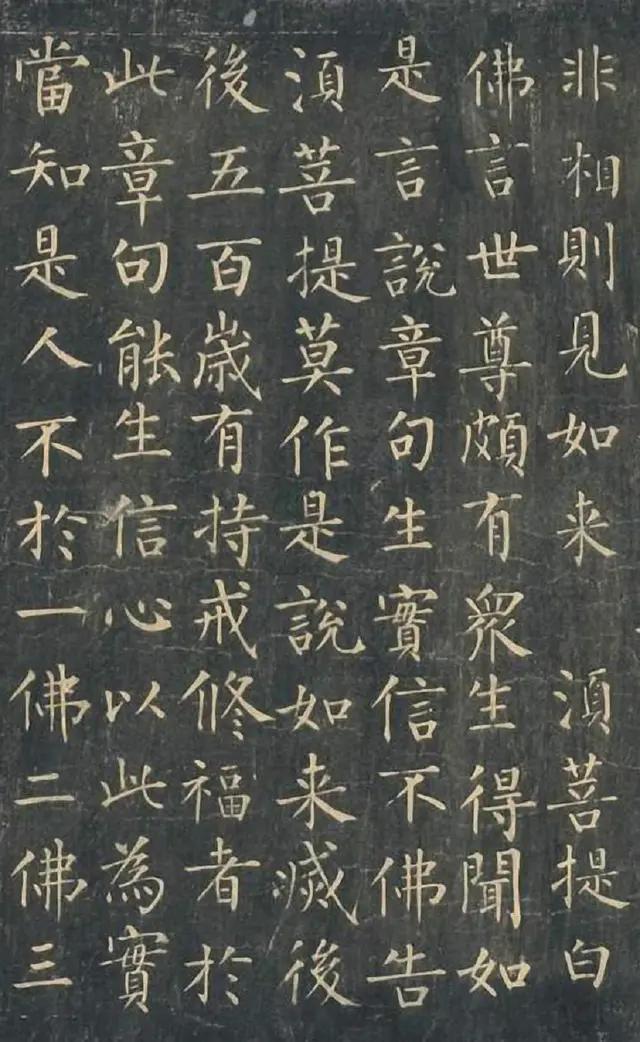 非相則見如来　湏菩提白
佛言世尊頗有衆生得聞如
是言說章句生實信不佛告
湏菩提莫作是說如来滅後
後五百歳有持戒修福者於
此章句能生信心以此為實
當知是人不於一佛二佛三